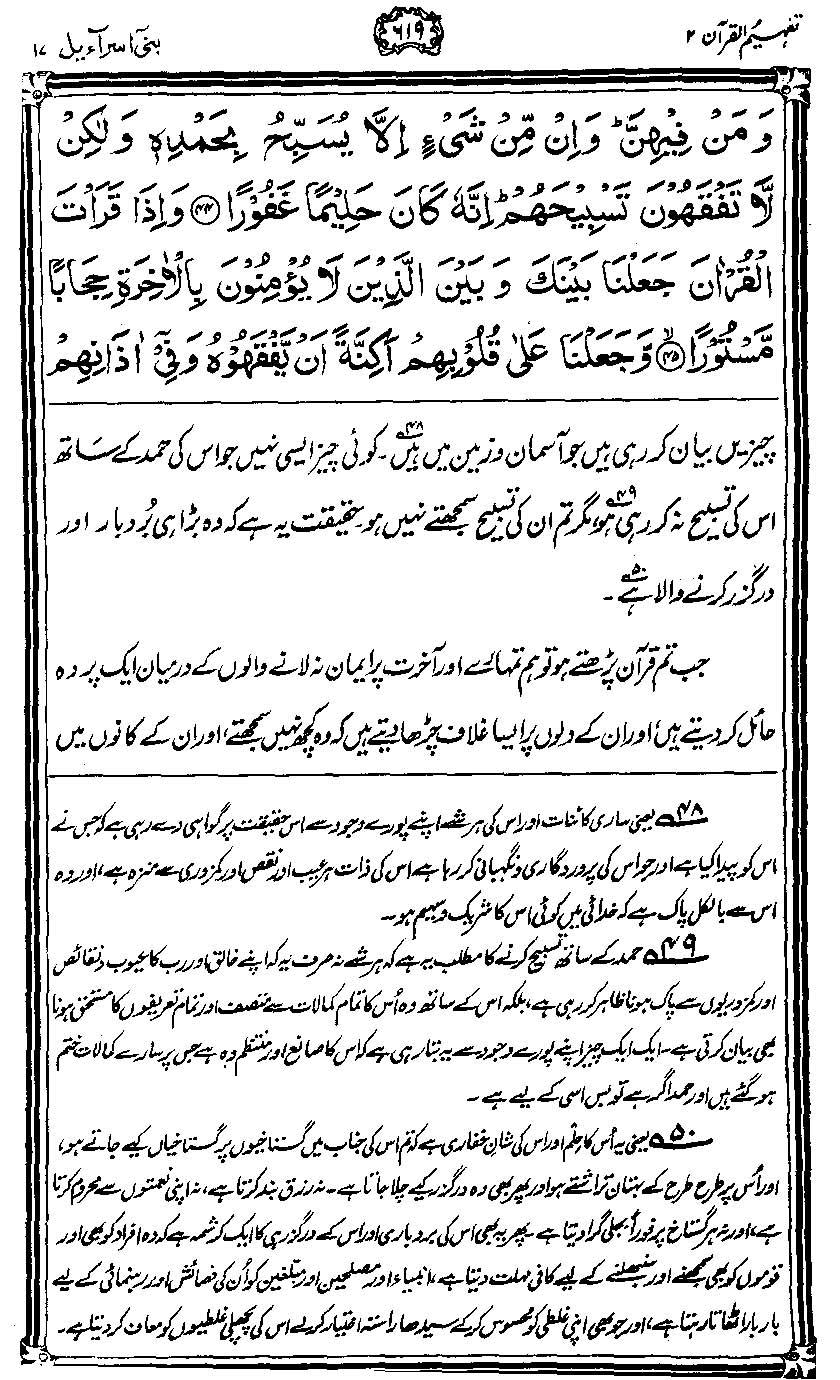 تفہیم القرآن ۲
۶۱۹
بنی اسرآءیل ۱۷
وَ مَنْ فِيْهِنَّ ؕ وَ اِنْ مِّنْ شَيْءٍ اِلَّا يُسَبِّحُ بِحَمْدِهٖ وَ لٰكِنْ
لَّا تَفْقَهُوْنَ تَسْبِيْحَهُمْ ؕ اِنَّهٗ كَانَ حَلِيْمًا غَفُوْرًا ۴۴ وَ اِذَا قَرَاْتَ
الْقُرْاٰنَ جَعَلْنَا بَيْنَكَ وَ بَيْنَ الَّذِيْنَ لَا يُؤْمِنُوْنَ بِالْاٰخِرَةِ حِجَابًا
مَّسْتُوْرًا ۙ ۴۵ وَّ جَعَلْنَا عَلٰى قُلُوْبِهِمْ اَكِنَّةً اَنْ يَّفْقَهُوْهُ وَ فِيْۤ اٰذَانِهِمْ
چیزیں بیان کر رہی ہیں جو آسمان و زمین میں ہیں۴۸۔ کوئی چیز ایسی نہیں جو اس کی حمد کے ساتھ
اس کی تسبیح نہ کر رہی ہو۴۹، مگر تم ان کی تسبیح سمجھتے نہیں ہو۔ حقیقت یہ ہے کہ وہ بڑا ہی بُردبار اور
درگزر کرنے والا ہے۵۰۔
جب تم قرآن پڑھتے ہو تو ہم تمہارے اور آخرت پر ایمان نہ لانے والوں کے درمیان ایک پردہ
حائل کر دیتے ہیں، اور ان کے دلوں پر ایسا غلاف چڑھا دیتے ہیں کہ وہ کچھ نہیں سمجھتے، اور ان کے کانوں میں
۴۸ یعنی ساری کائنات اور اس کی ہر شے اپنے پورے وجود سے اس حقیقت پر گواہی دے رہی ہے کہ جس نے
اس کو پیدا کیا ہے اور جو اس کی پروردگاری و نگہبانی کر رہا ہے اس کی ذات ہر عیب اور نقص اور کمزوری سے منزہ ہے، اور وہ
اس سے بالکل پاک ہے کہ خدائی میں کوئی اس کا شریک و سہیم ہو۔
۴۹ حمد کے ساتھ تسبیح کرنے کا مطلب یہ ہے کہ ہر شے نہ صرف یہ کہ اپنے خالق اور رب کا عیوب و نقائص
اور کمزوریوں سے پاک ہونا ظاہر کر رہی ہے، بلکہ اس کے ساتھ وہ اُس کا تمام کمالات سے متصف اور تمام تعریفوں کا مستحق ہونا
بھی بیان کرتی ہے۔ ایک ایک چیز اپنے پورے وجود سے یہ بتا رہی ہے کہ اس کا صانع اور منتظم وہ ہے جس پر سارے کمالات ختم
ہو گئے ہیں اور حمد اگر ہے تو بس اسی کے لیے ہے۔
۵۰ یعنی یہ اُس کا حِلم اور اس کی شانِ غفاری ہے کہ تم اس کی جناب میں گستاخیوں پر گستاخیاں کیے جاتے ہو،
اور اُس پر طرح طرح کے بہتان تراشتے ہو اور پھر بھی وہ درگزر کیے چلا جاتا ہے۔ نہ رزق بند کرتا ہے، نہ اپنی نعمتوں سے محروم کرتا
ہے، اور نہ ہر گستاخ پر فوراً بجلی گرا دیتا ہے۔ پھر یہ بھی اس کی بردباری اور اس کے درگزر ہی کا ایک کرشمہ ہے کہ وہ افراد کو بھی اور
قوموں کو بھی سمجھنے اور سنبھلنے کے لیے کافی مہلت دیتا ہے، انبیاء اور مصلحین اور مبلّغین کو اُن کی فہمائش اور رہنمائی کے لیے
بار بار اٹھاتا رہتا ہے، اور جو بھی اپنی غلطی کو محسوس کر کے سیدھا راستہ اختیار کر لے اس کی پچھلی غلطیوں کو معاف کر دیتا ہے۔